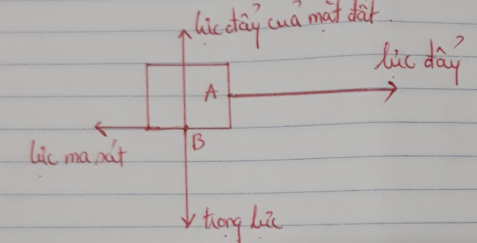 lực đẩy của mặt đất.
lực đẩy
A
B
lực ma sát
trọng lực